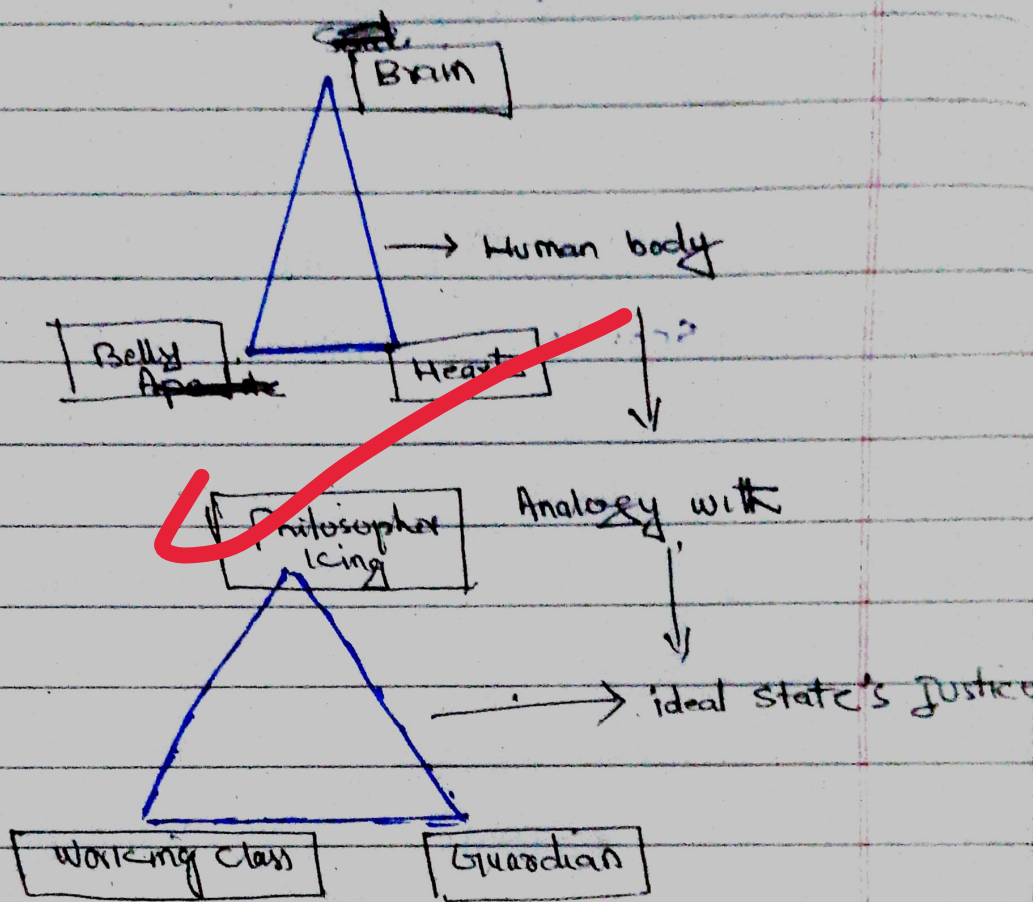 Brain
Human body
Belly
Heart
Philosopher
King
Analogy with
ideal state's Justice
Working Class
Guardian